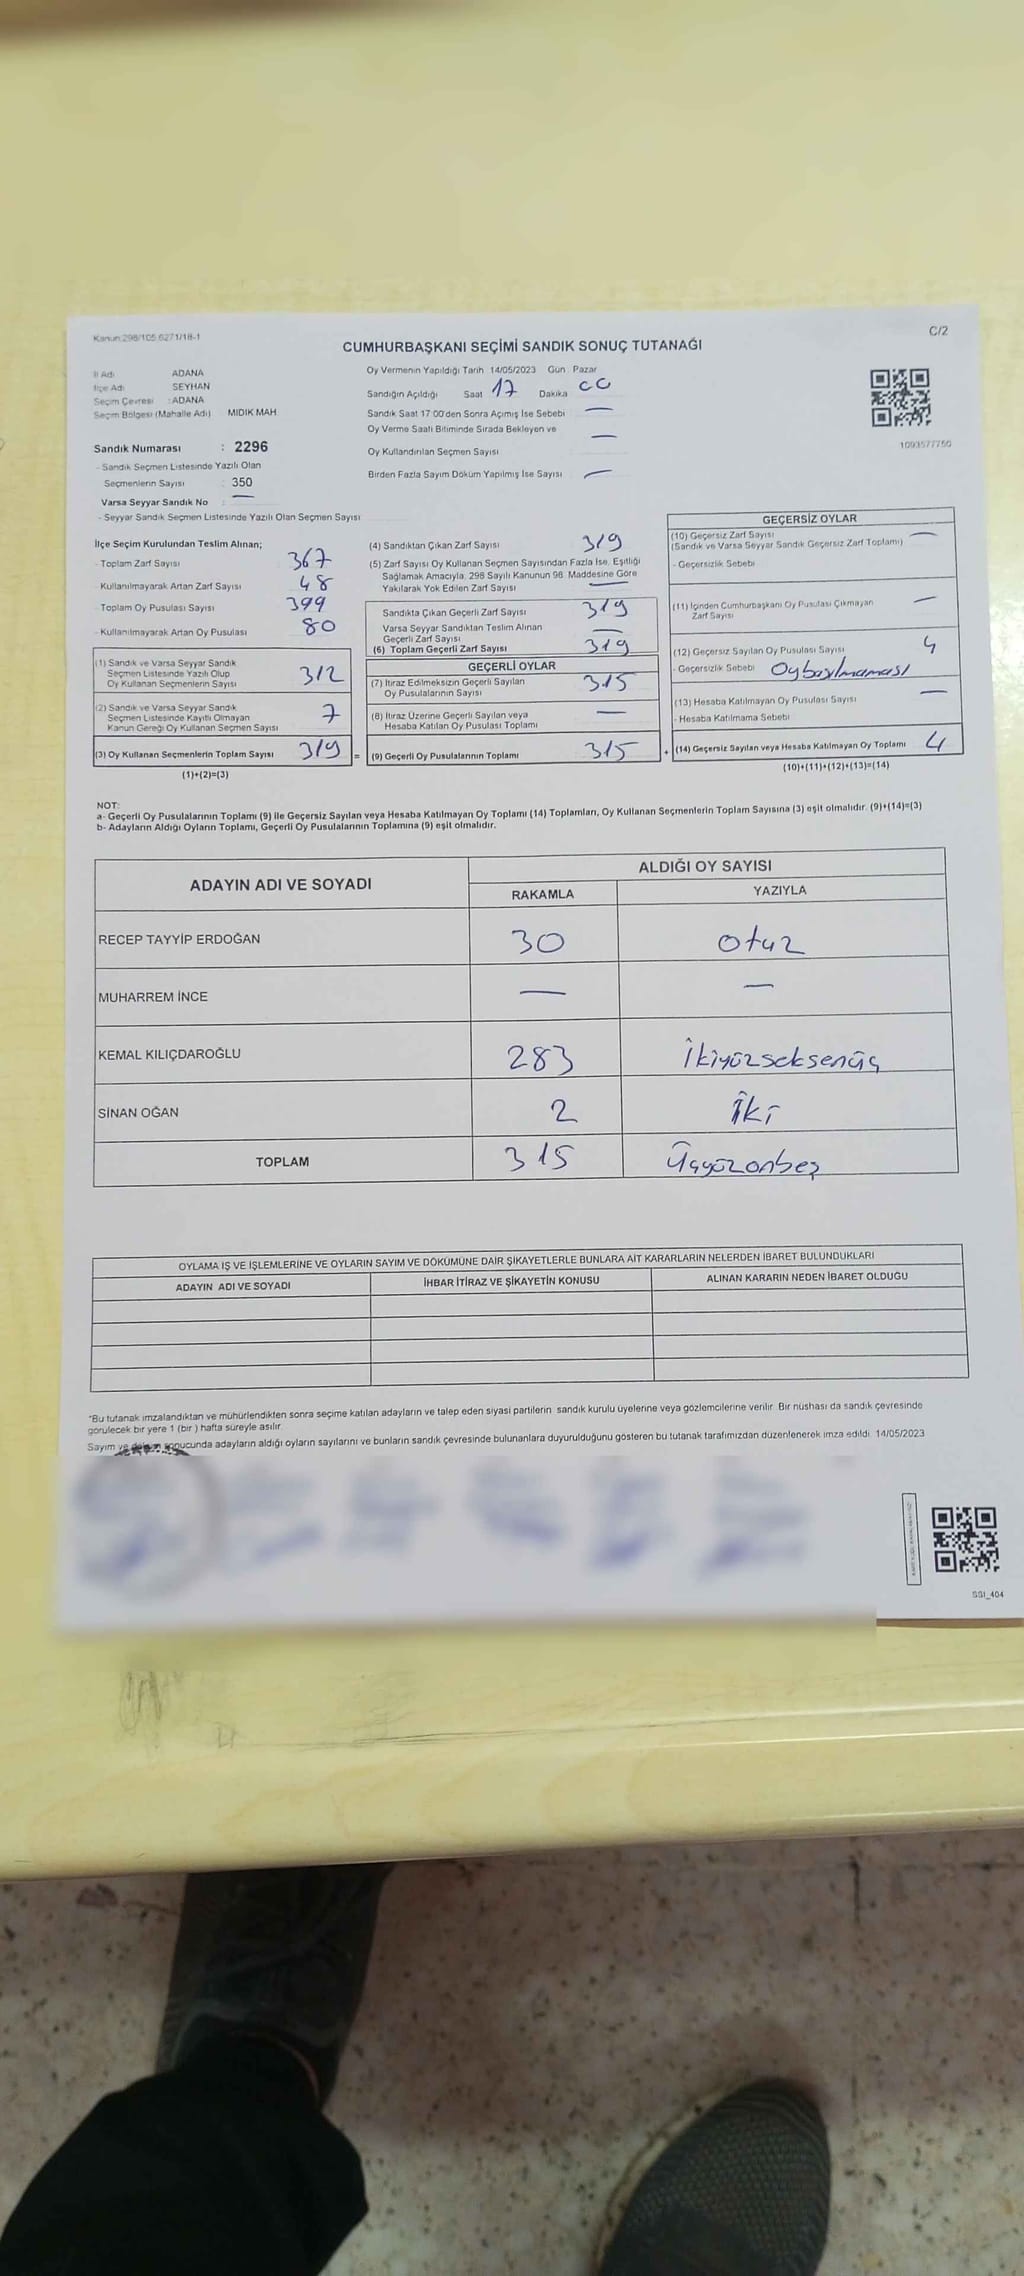 Kanun:298/105,6271/18-1
C/2
CUMHURBAŞKANI SEÇİMİ SANDIK SONUÇ TUTANAĞI
İl Adı ADANA
İlçe Adı SEYHAN
Seçim Çevresi :ADANA
Seçim Bölgesi (Mahalle Adı) MIDIK MAH
Sandık Numarası : 2296
- Sandık Seçmen Listesinde Yazılı Olan
Seçmenlerin Sayısı : 350
Varsa Seyyar Sandık No : —
- Seyyar Sandık Seçmen Listesinde Yazılı Olan Seçmen Sayısı
Oy Vermenin Yapıldığı Tarih 14/05/2023 Gün Pazar
Sandığın Açıldığı Saat 17 Dakika 00
Sandık Saat 17:00'den Sonra Açımış İse Sebebi —
Oy Verme Saati Bitiminde Sırada Bekleyen ve
Oy Kullandırılan Seçmen Sayısı —
Birden Fazla Sayım Döküm Yapılmış İse Sayısı —
1093577750
İlçe Seçim Kurulundan Teslim Alınan;
- Toplam Zarf Sayısı 367
- Kullanılmayarak Artan Zarf Sayısı 48
- Toplam Oy Pusulası Sayısı 399
- Kullanılmayarak Artan Oy Pusulası 80
(1) Sandık ve Varsa Seyyar Sandık
Seçmen Listesinde Yazılı Olup
Oy Kullanan Seçmenlerin Sayısı 312
(2) Sandık ve Varsa Seyyar Sandık
Seçmen Listesinde Kayıtlı Olmayan
Kanun Gereği Oy Kullanan Seçmen Sayısı 7
(3) Oy Kullanan Seçmenlerin Toplam Sayısı 319 =
(1)+(2)=(3)
(4) Sandıktan Çıkan Zarf Sayısı 319
(5) Zarf Sayısı Oy Kullanan Seçmen Sayısından Fazla İse, Eşitliği
Sağlamak Amacıyla, 298 Sayılı Kanunun 98. Maddesine Göre
Yakılarak Yok Edilen Zarf Sayısı —
Sandıkta Çıkan Geçerli Zarf Sayısı 319
Varsa Seyyar Sandıktan Teslim Alınan
Geçerli Zarf Sayısı —
(6) Toplam Geçerli Zarf Sayısı 319
GEÇERLİ OYLAR
(7) İtiraz Edilmeksizin Geçerli Sayılan
Oy Pusulalarının Sayısı 315
(8) İtiraz Üzerine Geçerli Sayılan veya
Hesaba Katılan Oy Pusulası Toplamı —
(9) Geçerli Oy Pusulalarının Toplamı 315 +
GEÇERSİZ OYLAR
(10) Geçersiz Zarf Sayısı —
(Sandık ve Varsa Seyyar Sandık Geçersiz Zarf Toplamı)
- Geçersizlik Sebebi
(11) İçinden Cumhurbaşkanı Oy Pusulası Çıkmayan
Zarf Sayısı —
(12) Geçersiz Sayılan Oy Pusulası Sayısı 4
- Geçersizlik Sebebi Oy basılmaması
(13) Hesaba Katılmayan Oy Pusulası Sayısı —
- Hesaba Katılmama Sebebi
(14) Geçersiz Sayılan veya Hesaba Katılmayan Oy Toplamı 4
(10)+(11)+(12)+(13)=(14)
NOT:
a- Geçerli Oy Pusulalarının Toplamı (9) ile Geçersiz Sayılan veya Hesaba Katılmayan Oy Toplamı (14) Toplamları, Oy Kullanan Seçmenlerin Toplam Sayısına (3) eşit olmalıdır. (9)+(14)=(3)
b- Adayların Aldığı Oyların Toplamı, Geçerli Oy Pusulalarının Toplamına (9) eşit olmalıdır.
ADAYIN ADI VE SOYADI
ALDIĞI OY SAYISI
RAKAMLA YAZIYLA
RECEP TAYYİP ERDOĞAN 30 otuz
MUHARREM İNCE — —
KEMAL KILIÇDAROĞLU 283 İkiyüzseksenüç
SİNAN OĞAN 2 İki
TOPLAM 315 Üçyüzonbeş
OYLAMA İŞ VE İŞLEMLERİNE VE OYLARIN SAYIM VE DÖKÜMÜNE DAİR ŞİKAYETLERLE BUNLARA AİT KARARLARIN NELERDEN İBARET BULUNDUKLARI
ADAYIN ADI VE SOYADI İHBAR İTİRAZ VE ŞİKAYETİN KONUSU ALINAN KARARIN NEDEN İBARET OLDUĞU
*Bu tutanak imzalandıktan ve mühürlendikten sonra seçime katılan adayların ve talep eden siyasi partilerin sandık kurulu üyelerine veya gözlemcilerine verilir. Bir nüshası da sandık çevresinde
görülecek bir yere 1 (bir ) hafta süreyle asılır.
Sayım ve döküm sonucunda adayların aldığı oyların sayılarını ve bunların sandık çevresinde bulunanlara duyurulduğunu gösteren bu tutanak tarafımızdan düzenlenerek imza edildi. 14/05/2023
SSI_404